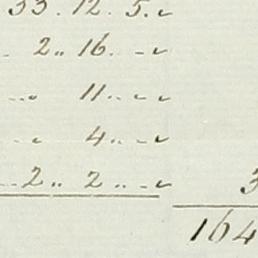 33. 12. 5. -
2.. 16. - -
11. - -
4.. - -
2.. 2.. - -
3
164